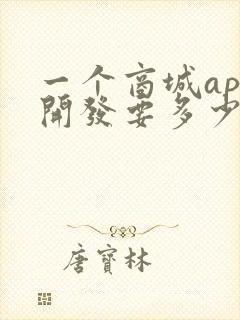 一个商城ap
開發要多少
唐寳林